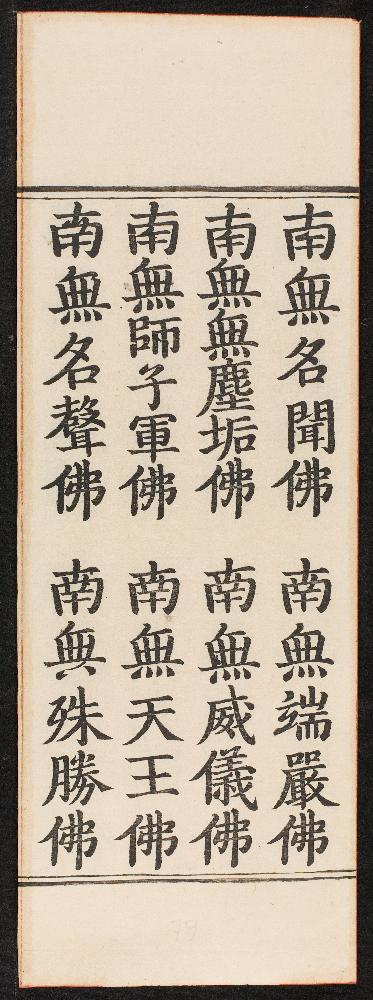 南無名聞佛 南無端嚴佛
南無無塵垢佛 南無威儀佛
南無師子軍佛 南無天王佛
南無名聲佛 南無殊勝佛